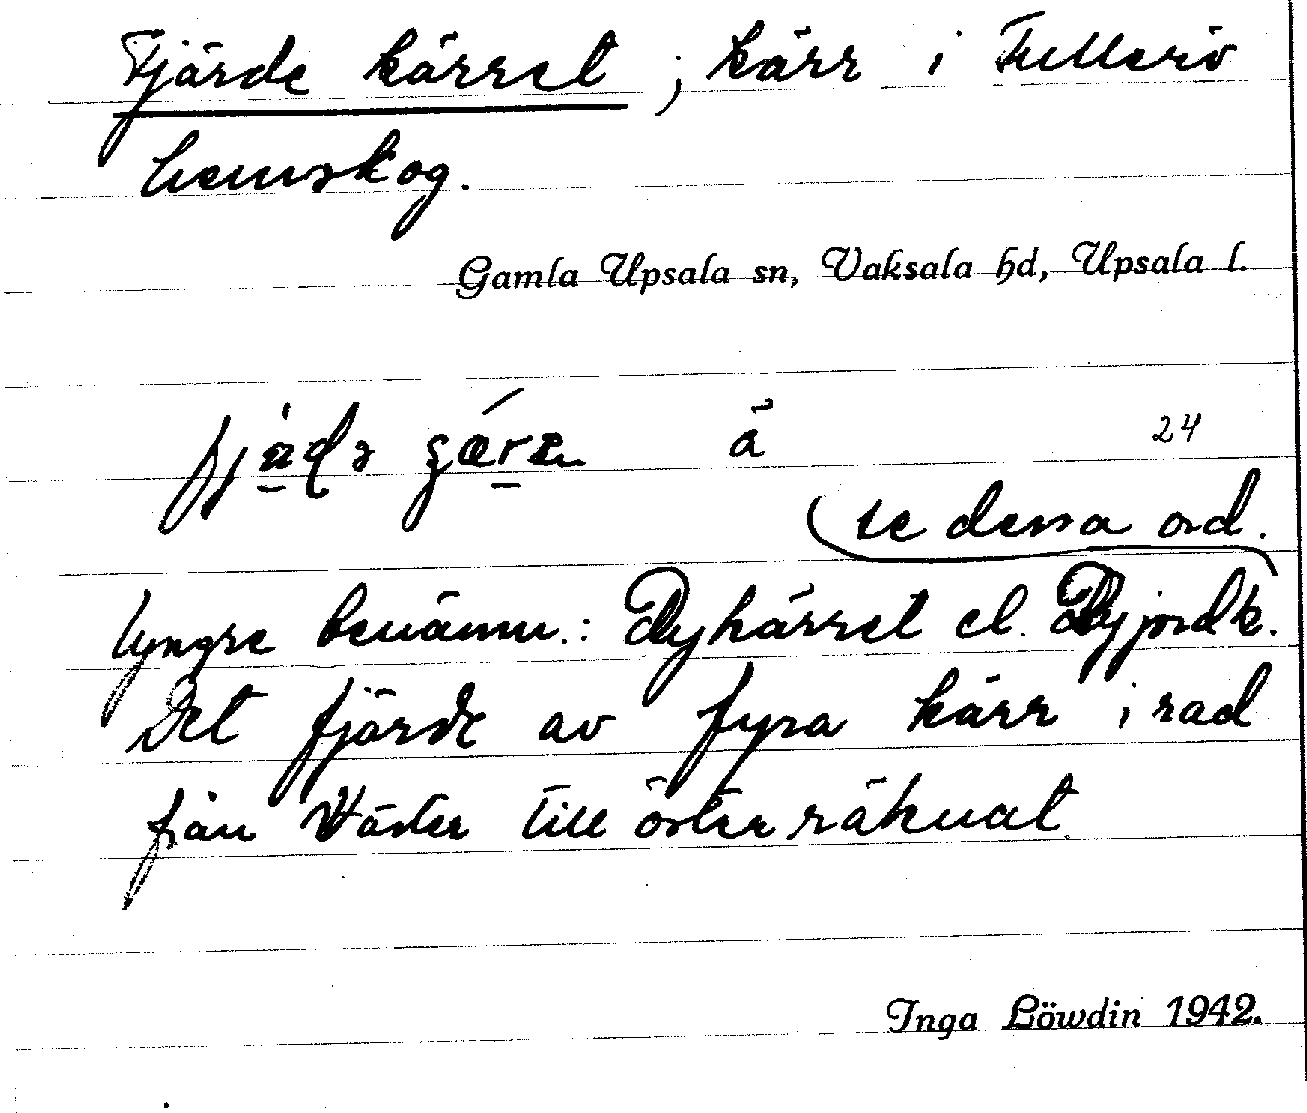 Fjärde kärret ; kärr i Fullerö
hemskog.
Gamla Upsala sn, Vaksala hd, Upsala l.
å
24
(se dessa ord.
Yngre benämn.: Dykärret el. Dyjordk.
Det fjärde av fyra kärr i rad
från Väster till öster räknat
Inga Löwdin 1942.